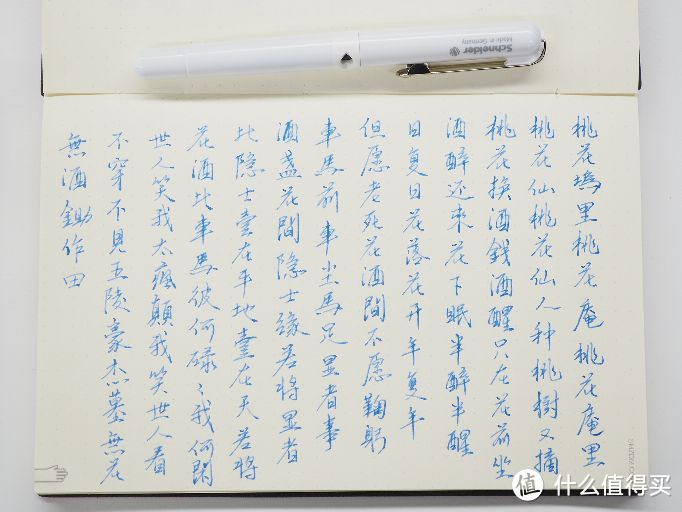 Schneider
Made in Germany
桃花塢里桃花庵桃花庵里
桃花仙桃花仙人种桃樹又摘
桃花換酒錢酒醒只在花前坐
酒醉还來花下眠半醉半醒
日复日花落花开年复年
但愿老死花酒間不愿鞠躬
車馬前車尘馬足显者事
酒盏花間隐士緣若將显者
比隐士壹在平地壹在天若將
花酒比車馬彼何碌〻我何閑
世人笑我太瘋顛我笑世人看
不穿不見五陵豪杰墓無花
無酒鋤作田
值 什么值得买